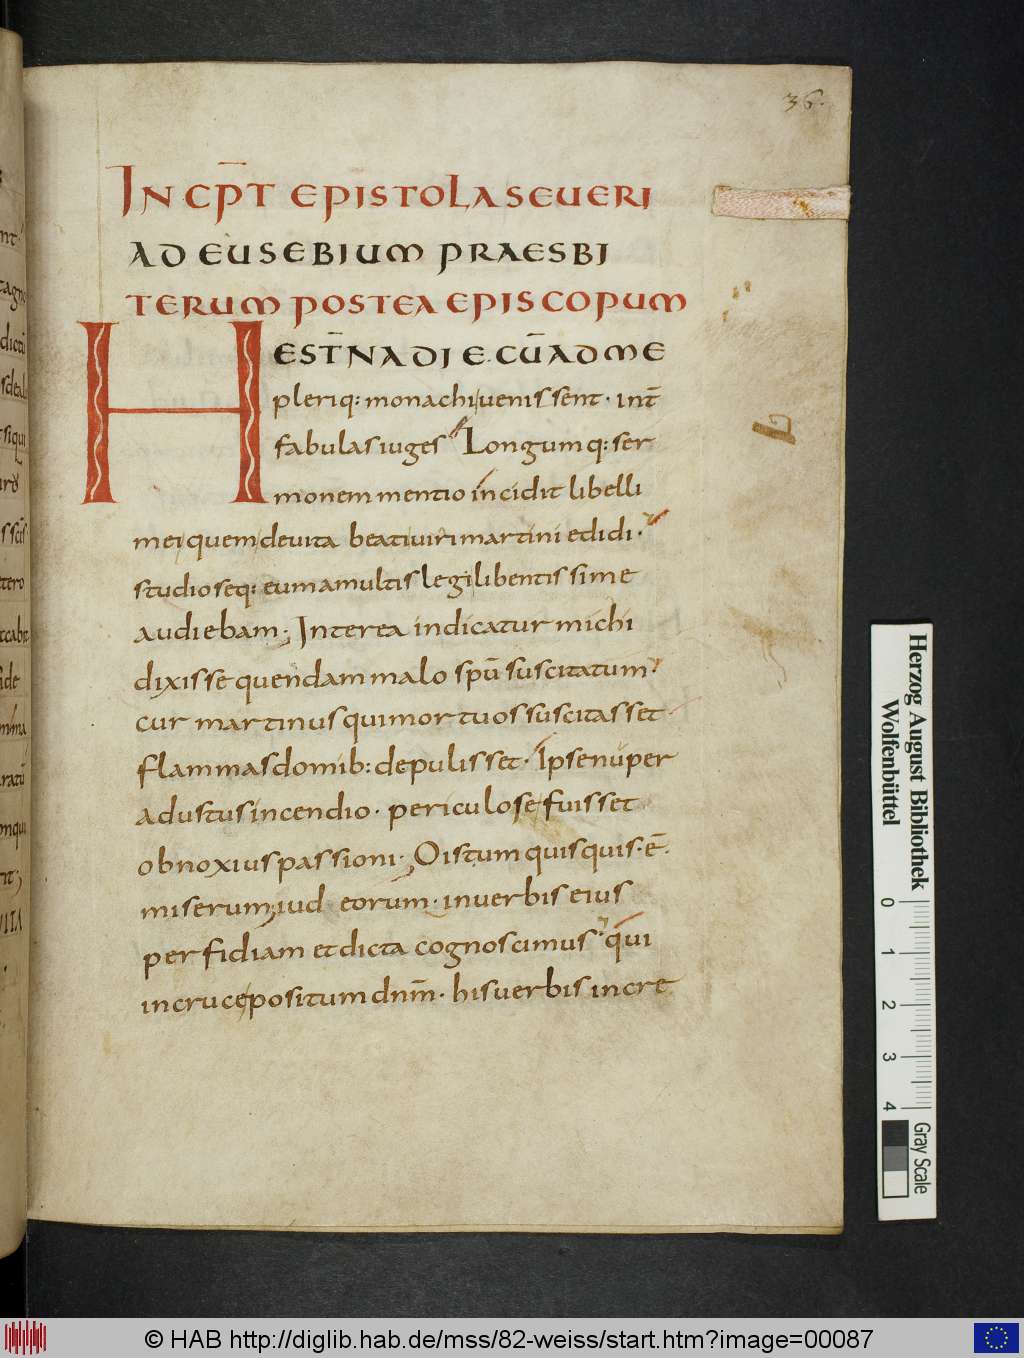 36.
INCP̄T EPISTOLA SEUERI
AD EUSEBIUM PRAESBI
TERUM POSTEA EPISCOPUM
HEST̄NA DIE. CŪ AD ME
pleriq: monachi uenissent. int̄
fabulas iuges Longumq: ser
monem mentio incidit libelli
mei quem deuita beati uiri martini edidi.
studioseq: eum a multis legi libentissime
audiebam; Interea indicatur michi
dixisse quendam malo spū suscitatum.
cur martinus qui mortuos suscitasset.
flammas domib: depulisset. Ipse nuper
adustus incendio. periculose fuisset
obnoxius passioni; O istum quisquis. ē.
miserum; iud eorum. in uerbis eius
perfidiam et dicta cognoscimus. qui
in cruce positum dnm̄. his uerbis incre
Herzog August Bibliothek
Wolfenbüttel
0 1 2 3 4
Gray Scale
© HAB http://diglib.hab.de/mss/82-weiss/start.htm?image=00087